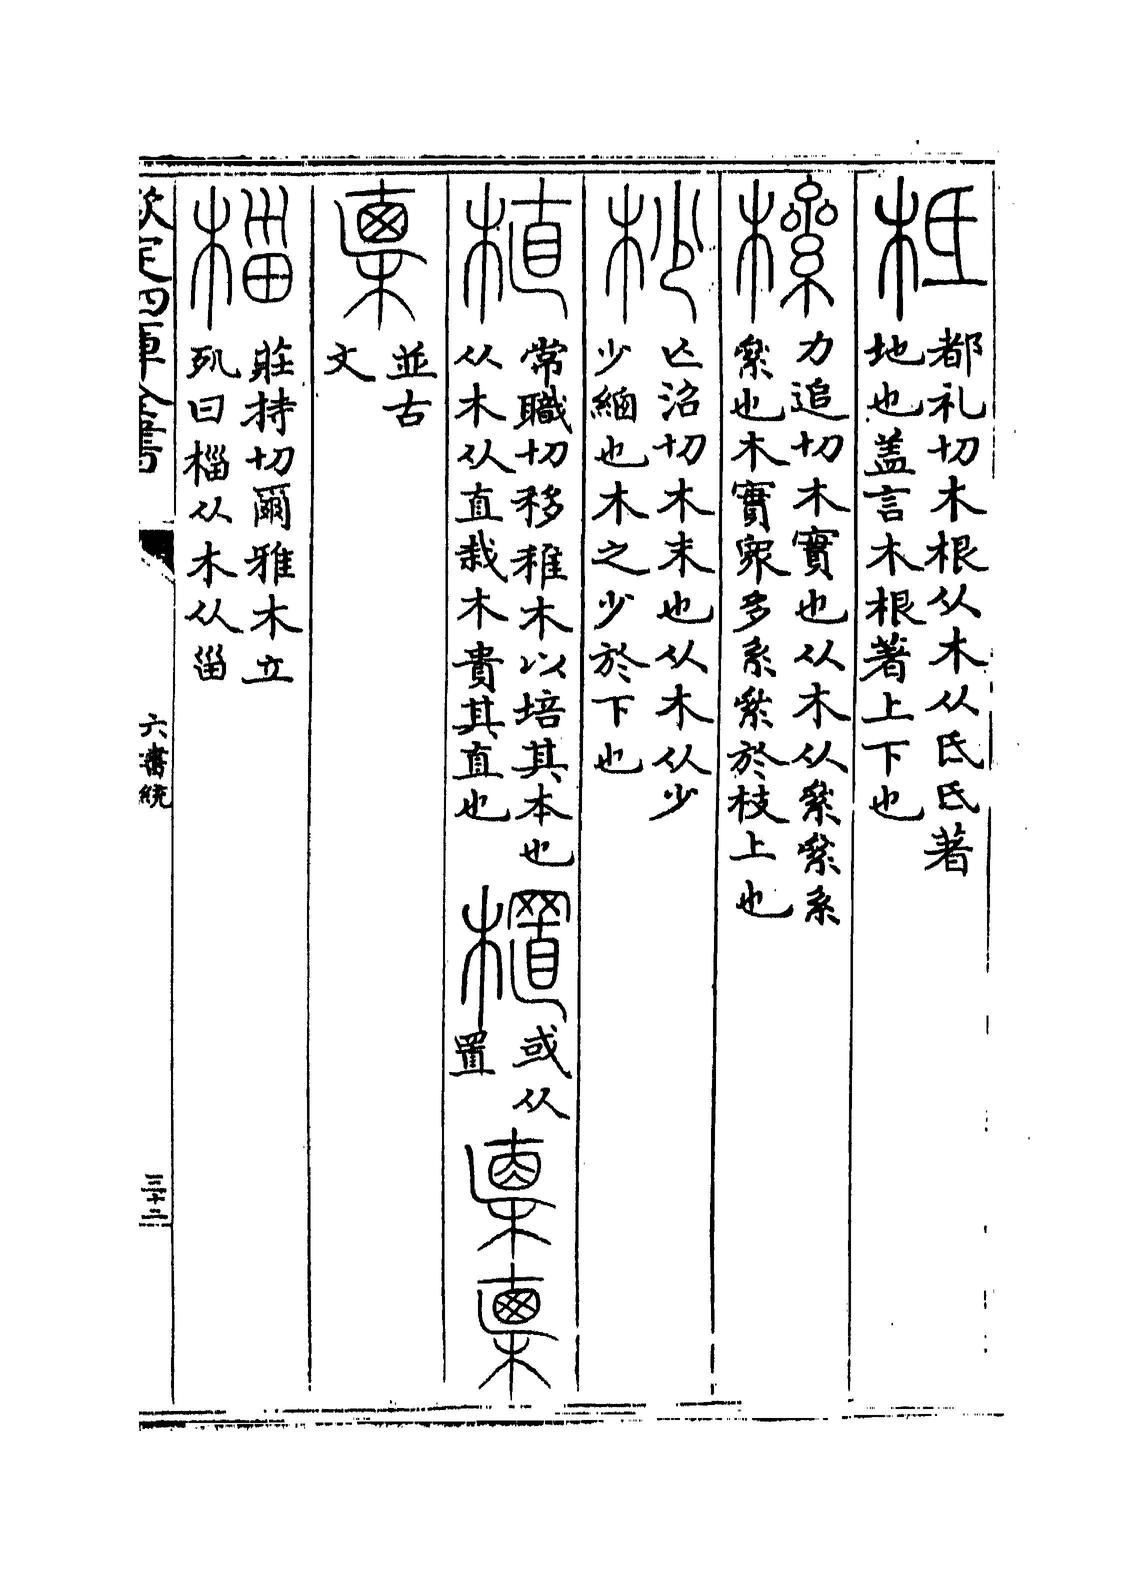 柢
都礼切木根从木从氐氐著
地也盖言木根著上下也
樏
力追切木實也从木从絫絫系
絫也木實衆多系絫於枝上也
杪
亡沼切木末也从木从少
少緬也木之少於下也
植
常職切移稚木以培其本也
从木从直栽木貴其直也
或从
置
並古
文
椔
莊持切爾雅木立
死曰椔从木从甾
欽定四庫全書
六書統
三十二